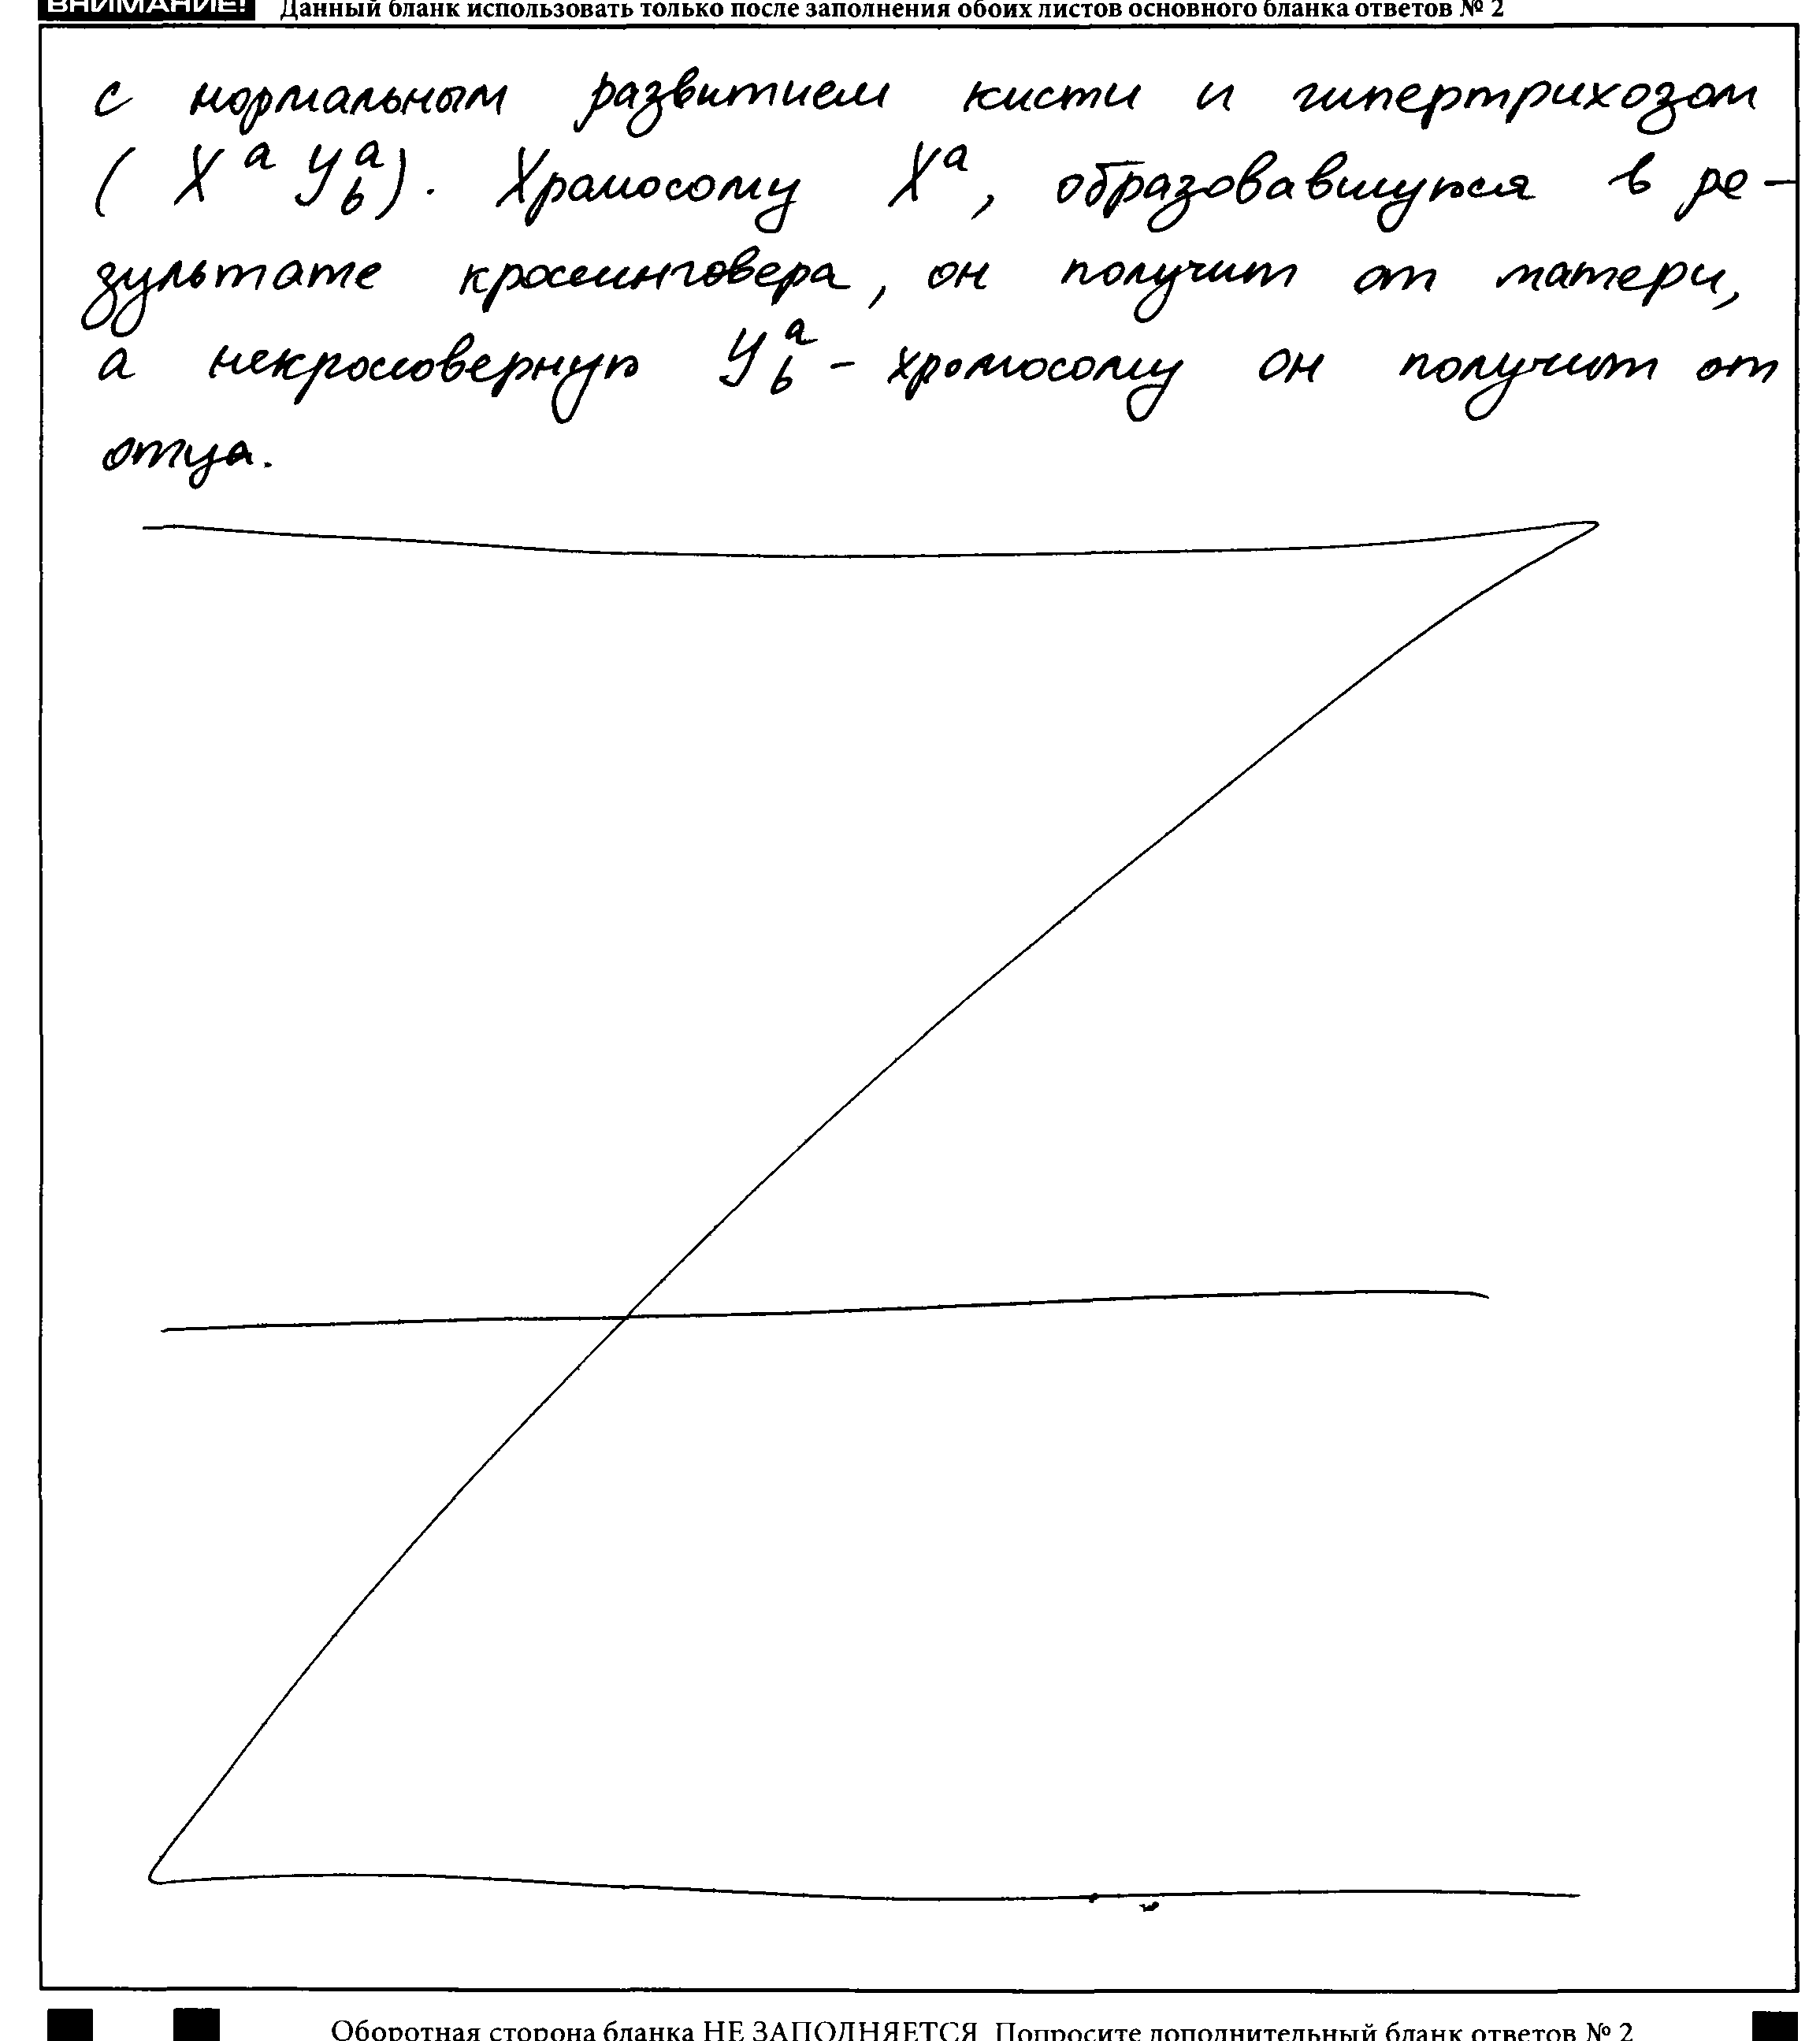 ВНИМАНИЕ! Данный бланк использовать только после заполнения обоих листов основного бланка ответов № 2
с нормальным развитием кисти и гипертрихозом
( X^a Y_b^a ). Хромосому X^a, образовавшуюся в ре-
зультате кроссинговера, он получит от матери,
а некроссоверную Y_b^a - хромосому он получит от
отца.
Оборотная сторона бланка НЕ ЗАПОЛНЯЕТСЯ. Попросите дополнительный бланк ответов № 2